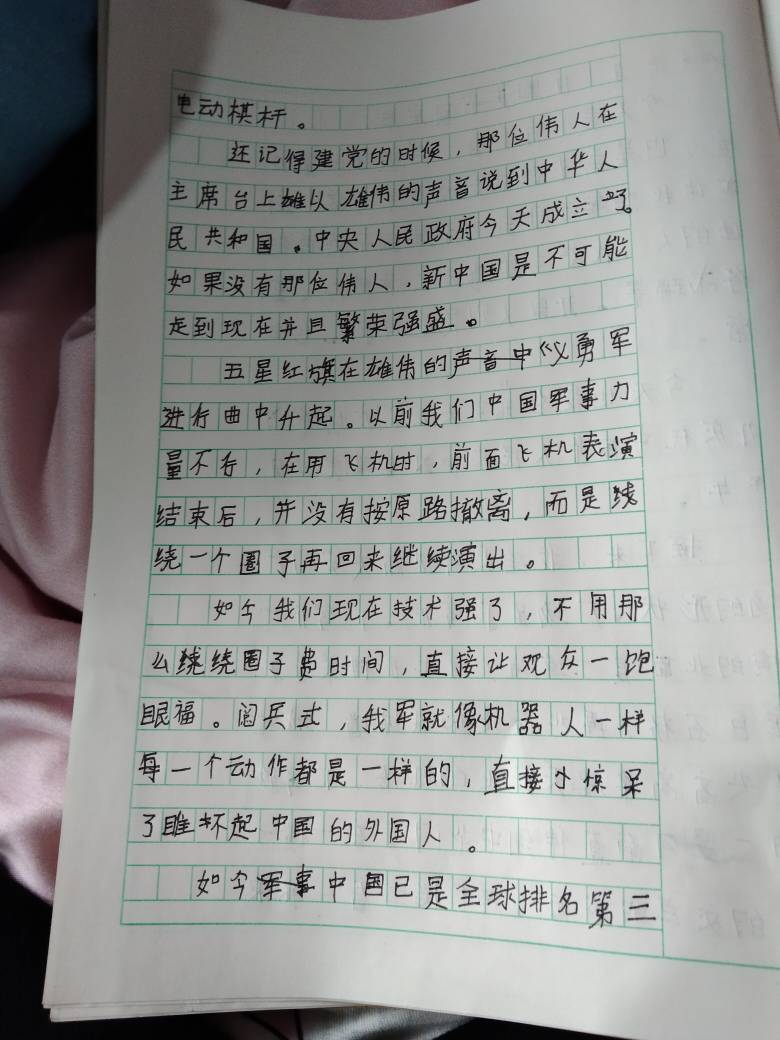 电动棋杆。
还记得建党的时候，那位伟人在
主席台上雄以雄伟的声音说到中华人
民共和国。中央人民政府今天成立了。
如果没有那位伟人，新中国是不可能
走到现在并且繁荣强盛。
五星红旗在雄伟的声音中《义勇军
进行曲中升起。以前我们中国军事力
量不行，在用飞机时，前面飞机表演
结束后，并没有按原路撤离，而是绕
绕一个圈子再回来继续演出。
如今我们现在技术强了，不用那
么绕绕圈子费时间，直接让观众一饱
眼福。阅兵式，我军就像机器人一样
每一个动作都是一样的，直接惊呆
了瞧坏起中国的外国人。
如今军事中国已是全球排名第三